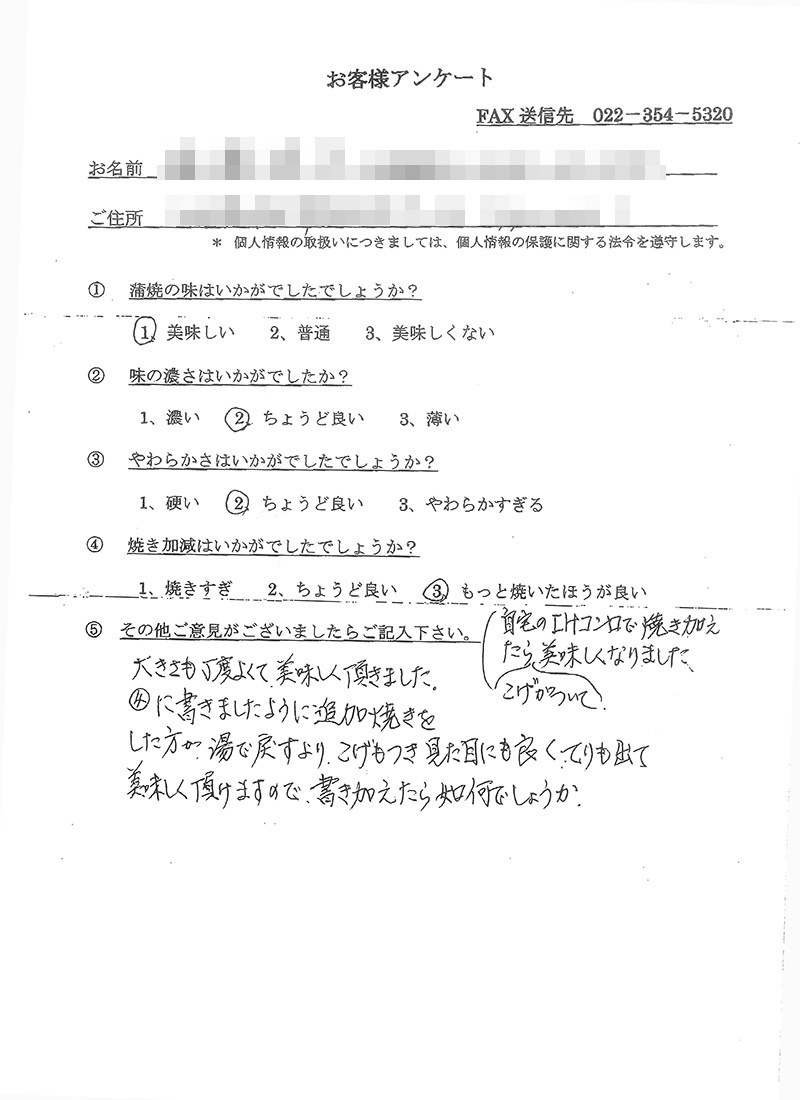 お客様アンケート
FAX送信先 022－354－5320
お名前
ご住所
＊ 個人情報の取扱いにつきましては、個人情報の保護に関する法令を遵守します。
① 蒲焼の味はいかがでしたでしょうか？
1、美味しい 2、普通 3、美味しくない
② 味の濃さはいかがでしたか？
1、濃い 2、ちょうど良い 3、薄い
③ やわらかさはいかがでしたでしょうか？
1、硬い 2、ちょうど良い 3、やわらかすぎる
④ 焼き加減はいかがでしたでしょうか？
1、焼きすぎ 2、ちょうど良い 3、もっと焼いたほうが良い
自宅のIHコンロで焼き加え
たら美味しくなりました、
こげがついて！
⑤ その他ご意見がございましたらご記入下さい。
大きさも丁度よくて、美味しく頂きました。
④に書きましたように追加焼きを
した方が、湯で戻すより、こげもつき見た目にも良く、てりも出て
美味しく頂けますので、書き加えたら如何でしょうか。